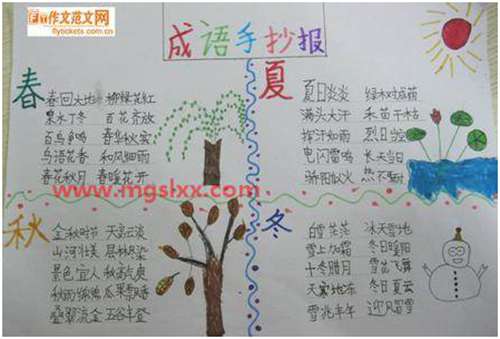 作文范文网
成语手抄报
春
春回大地 柳绿花红
泉水丁冬 百花齐放
百鸟争鸣 春华秋实
鸟语花香 和风细雨
春花秋月 春暖花开
夏
夏日炎炎 绿树成荫
满头大汗 禾苗干枯
挥汗如雨 烈日当空
电闪雷鸣
骄阳似火
www.mgslxx.com
秋
金秋时节 天高云淡
山河壮美 层林尽染
景色宜人 秋高气爽
秋雨绵绵 瓜果飘香
叠翠流金 五谷丰登
冬
白雪茫茫 冰天雪地
雪上加霜 冬日暖阳
十冬腊月 雪花飞舞
天寒地冻 冬日夏云
雪兆丰年 迎风冒雪